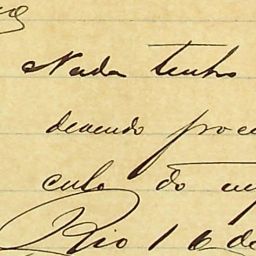 Nada tenho
devendo proce
culo do
Rio 16 de